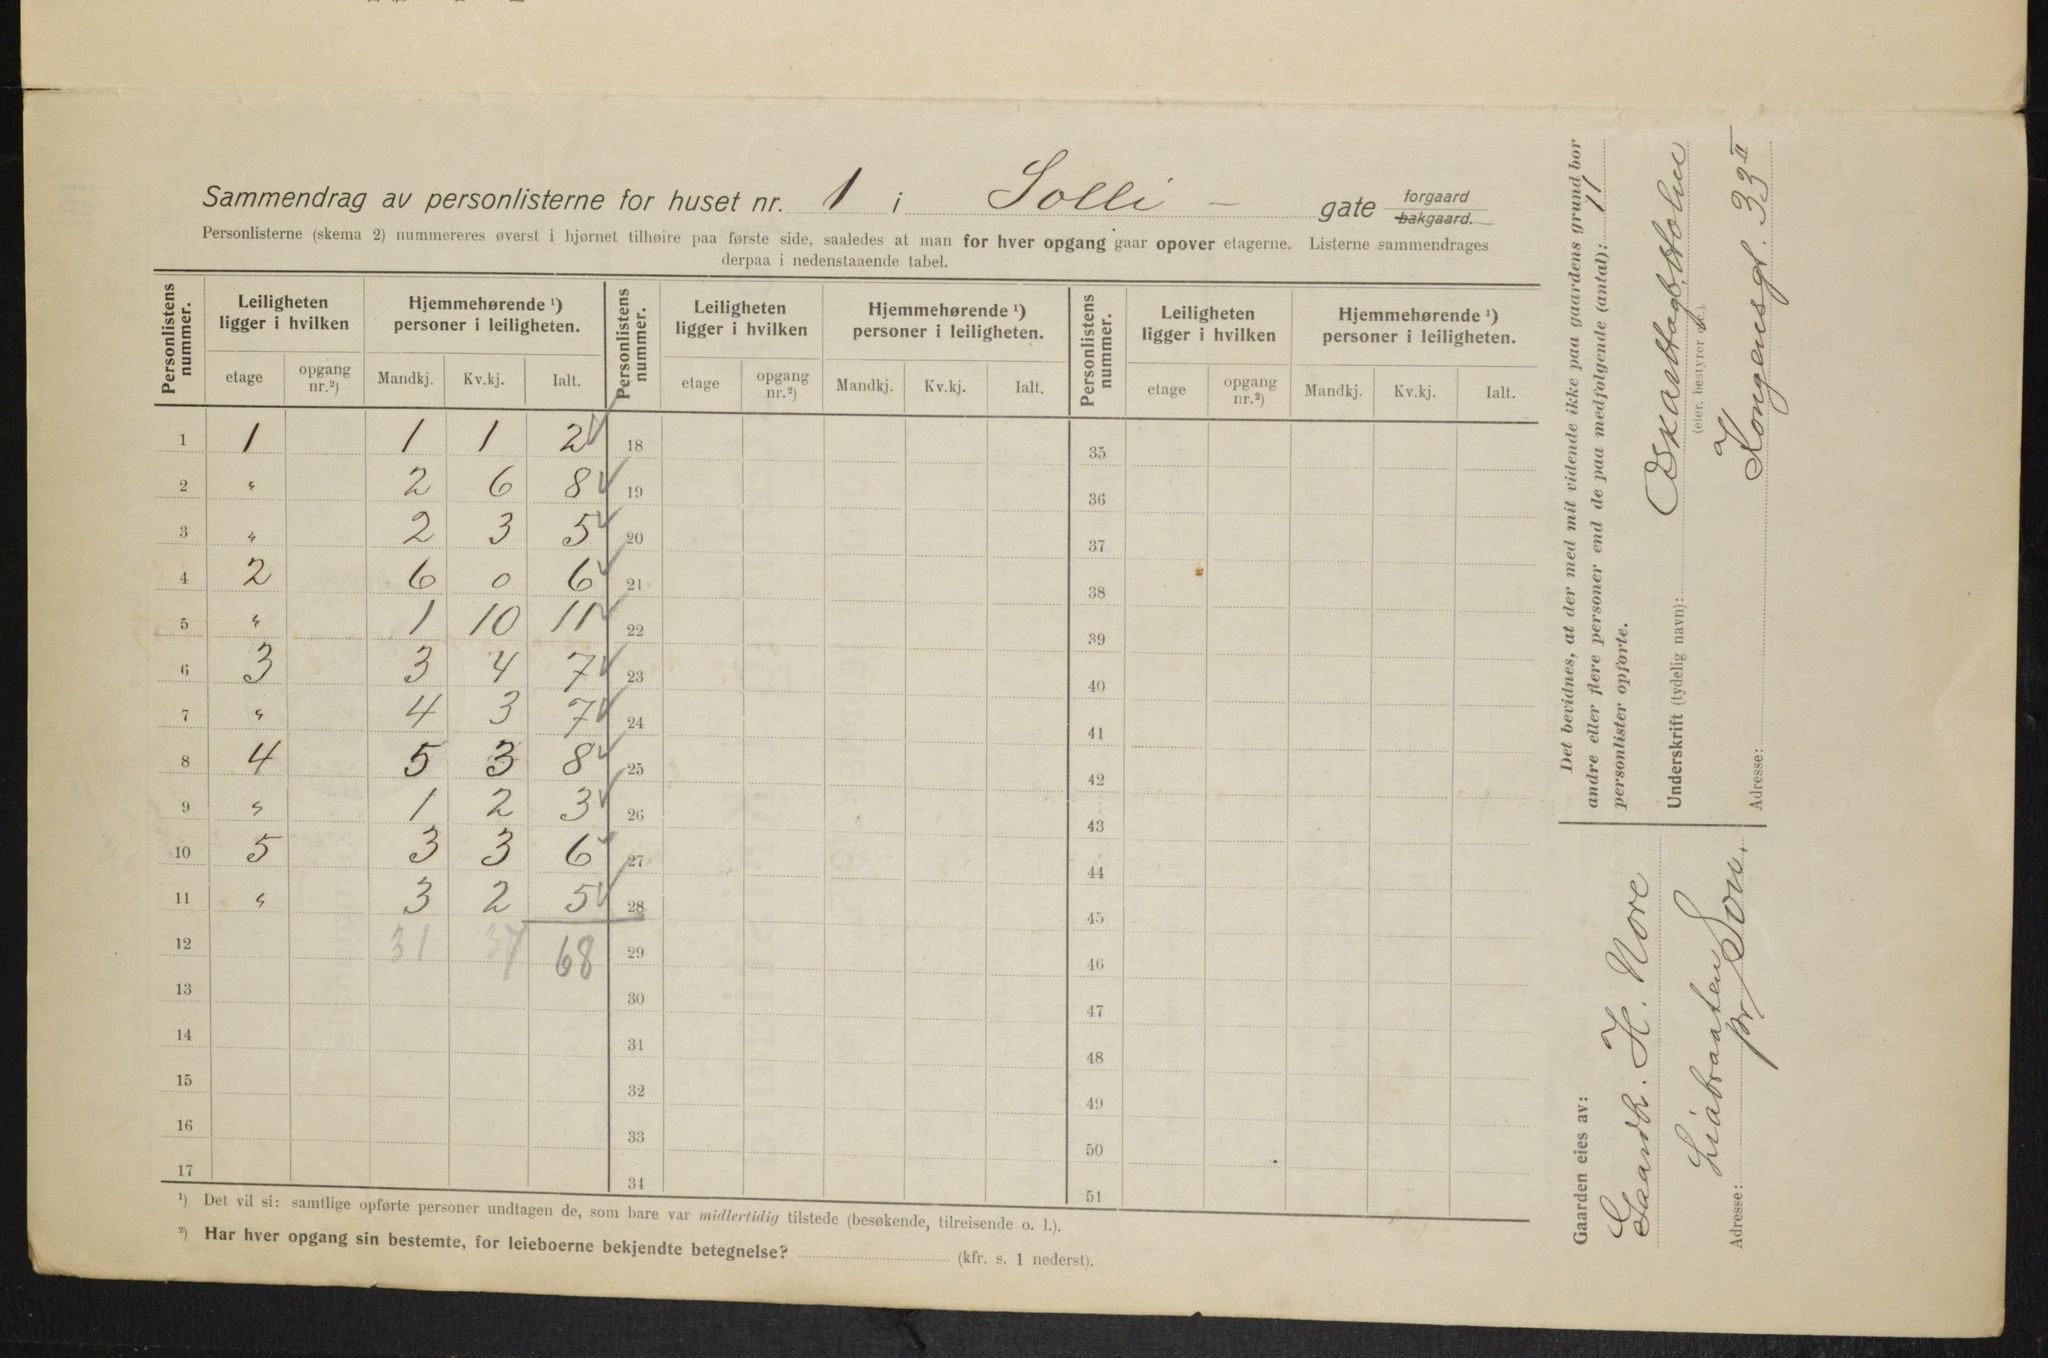 Sammendrag av personlisterne for huset nr. 1 i Solli - gate forgaard bakgaard.
Personlisterne (skema 2) nummereres øverst i hjørnet tilhøire paa første side, saaledes at man for hver opgang gaar opover etagerne. Listerne sammendrages
derpaa i nedenstaaende tabel.
Personlistens nummer. Leiligheten ligger i hvilken Hjemmehørende ¹) personer i leiligheten. Personlistens nummer. Leiligheten ligger i hvilken Hjemmehørende ¹) personer i leiligheten. Personlistens nummer. Leiligheten ligger i hvilken Hjemmehørende ¹) personer i leiligheten.
etage opgang nr.²) Mandkj. Kv.kj. Ialt. etage opgang nr.²) Mandkj. Kv.kj. Ialt. etage opgang nr.²) Mandkj. Kv.kj. Ialt.
1 1 1 1 2 18 35
2 " 2 6 8 19 36
3 " 2 3 5 20 37
4 2 6 0 6 21 38
5 " 1 10 11 22 39
6 3 3 4 7 23 40
7 " 4 3 7 24 41
8 4 5 3 8 25 42
9 " 1 2 3 26 43
10 5 3 3 6 27 44
11 " 3 2 5 28 45
12 31 37 68 29 46
13 30 47
14 31 48
15 32 49
16 33 50
17 34 51
¹) Det vil si: samtlige opførte personer undtagen de, som bare var midlertidig tilstede (besøkende, tilreisende o. l.).
²) Har hver opgang sin bestemte, for leieboerne bekjendte betegnelse? (kfr. s. 1 nederst).
Det bevidnes, at der med mit vidende ikke paa gaardens grund bor
andre eller flere personer end de paa medfølgende (antal): 11
personlister opførte.
Underskrift (tydelig navn):
(eier, bestyrer etc.).
Adresse: Kongensgt. 33 II
Gaarden eies av:
H. Nore
Adresse: Liabraaten
pr Son.